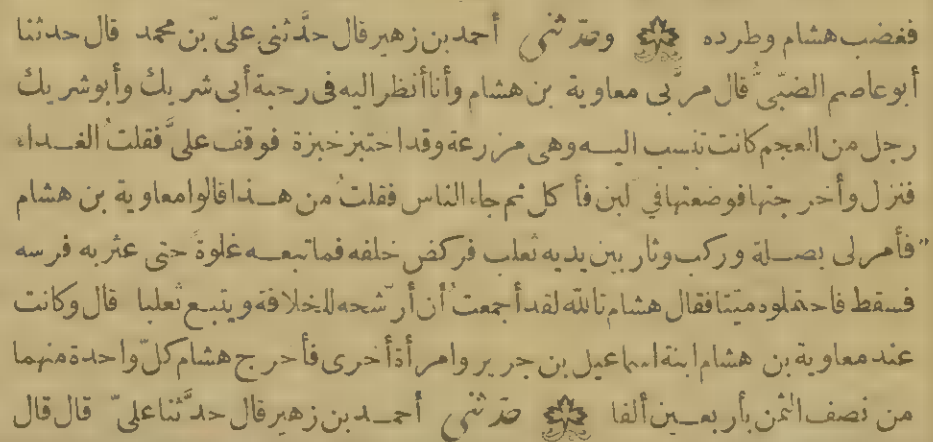 فغضب هشام وطرده وحدثنى أحمد بن زهير قال حدَّثنى علىّ بن محمد قال حدثنا
أبو عاصم الضبّىُّ قال مر بى معاوية بن هشام وأنا أنظر اليه فى رحبة أبى شريك وأبو شريك
رجل من العجم كانت تنسب اليه وهى مزرعة وقد اختبز خبزة فوقف علىَّ فقلتُ الغداء
فنزل وأخرجتها فوضعتها فى لبن فأكل ثم جاء الناس فقلتُ من هذا قالوا معاوية بن هشام
فأمر لى بصلة وركب وثار بين يديه ثعلب فركض خلفه فما تبعه غلوة حتى عثر به فرسه
فسقط فاحتملوه ميتا فقال هشام تالله لقد أجمعتُ أن أرشحه للخلافة ويتبع ثعلبا قال وكانت
عند معاوية بن هشام ابنة اسماعيل بن جرير وامرأة أخرى فأخرج هشام كلّ واحدة منهما
من نصف الثمن بأربعين ألفا حدثنى أحمد بن زهير قال حدَّثنا علىّ قال قال